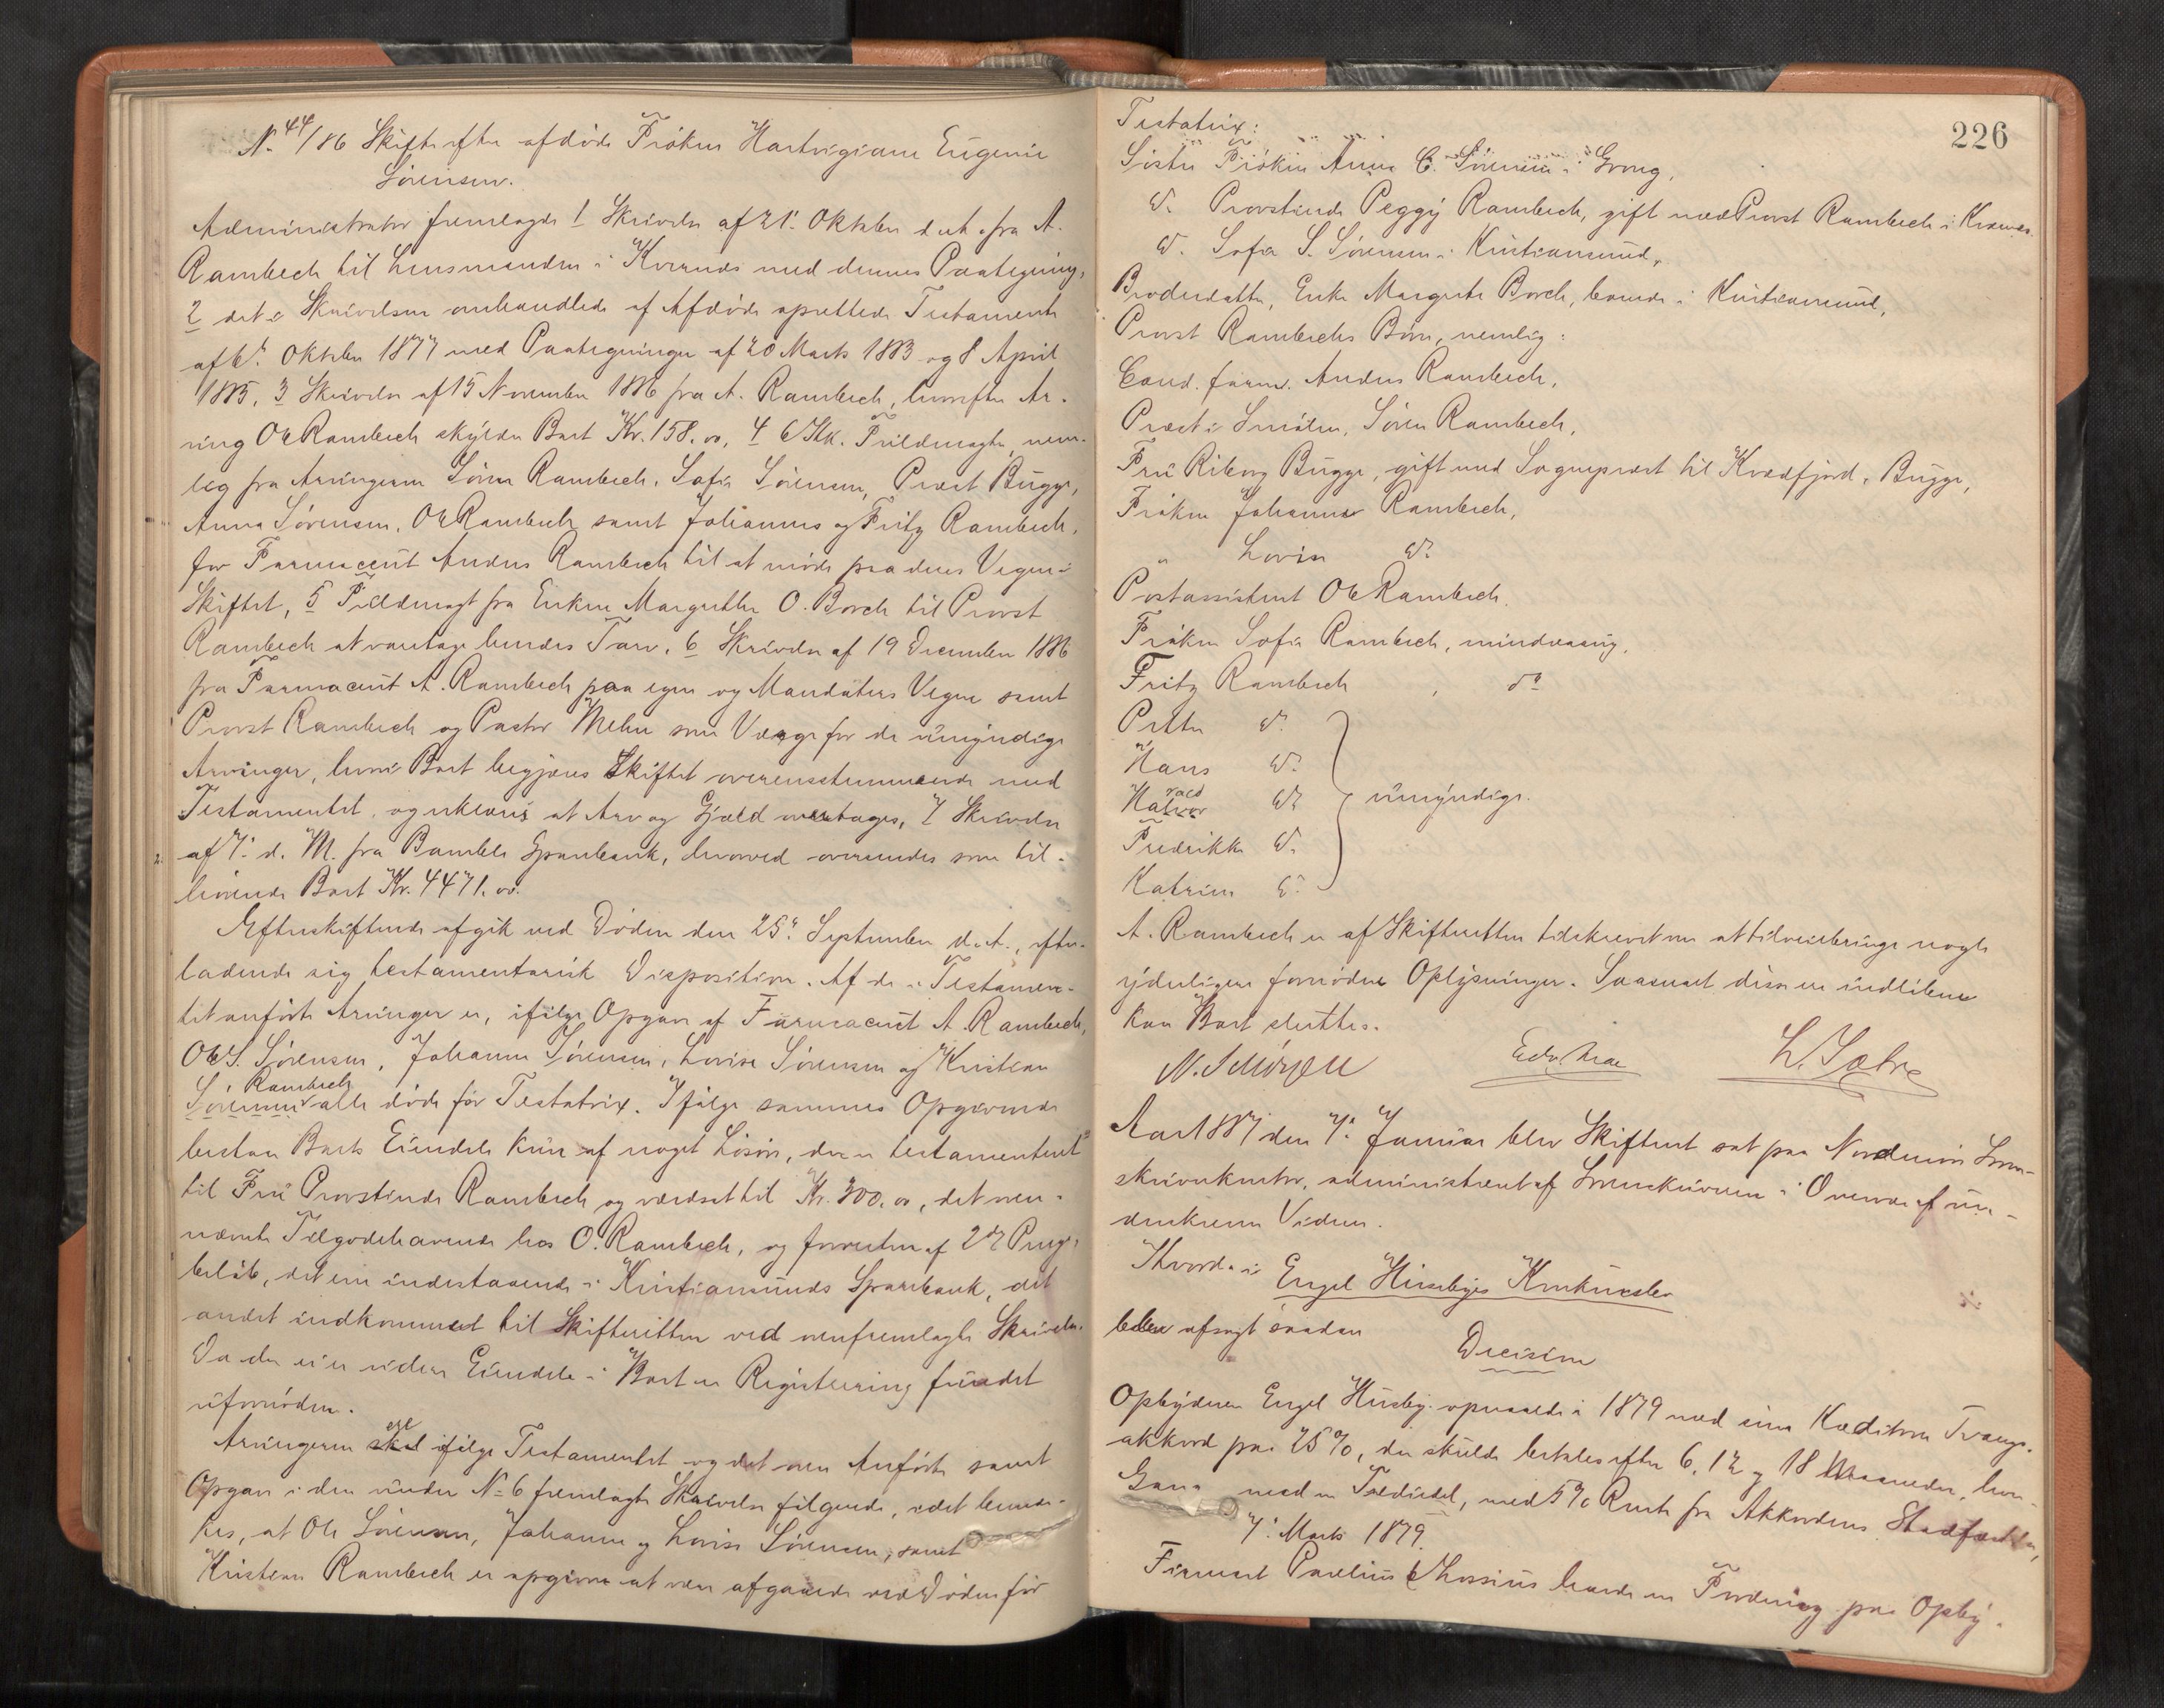 N. 44/86 Skifte efter afdøde Frøken Hartvigiane Eugenie
Sörensen.
Administrator fremlagde 1 Skrivelse af 21. Oktober d. A. fra A.
Rambech til Lensmanden i Kvernæs med dennes Paategning,
2 det i Skrivelsen omhandlede af Afdøde oprettede Testamente
af 6t. Oktober 1877 med Paategninger af 20 Marts 1883 og 8 April
1885, 3 Skrivelse af 15 November 1886 fra A. Rambech, hvorefter Ar-
ving Ole Rambech skylder Boet Kr. 158.00, 4 6 Stk. Fuldmagter, nem-
lig fra Arvingerne Sören Rambech, Sofie Sörensen, Præst Bugge,
Anna Sörensen, Ole Rambech samt Johannes og Fritz Rambech,
for Farmaceut Anders Rambech til at møde paa deres Vegne i
Skiftet, 5 Fuldmagt fra Enken Margrethe O. Borch til Provst
Rambech at varetage hendes Tarv, 6 Skrivelse af 19 December 1886
fra Farmaceut A. Rambech paa egne og Mandaters Vegne samt
Provst Rambech og Pastor Mehn som Værge for de umyndige
Arvinger, hvori Boet begjæres Skiftet overensstemmende med
Testamentet, og erklæres at Arv og Gjæld overtages, 7 Skrivelse
af 7. d. M. fra Bamble Sparebank, hvorved oversendes som til-
hørende Boet Kr. 4471.00.
Efterskiftende afgik ved Døden den 25. September d. A., efter-
ladende sig testamentarisk Disposition. Af de i Testamen-
tet anførte Arvinger er, ifølge Opgave af Farmaceut A. Rambech,
Ole S. Sörensen, Johanne Sörensen, Lovise Sörensen og Kristian
Rambech
Sörensen alle døde før Testatrix. Ifølge sammes Opgivende
bestaar Boets Eiendele kun af noget Løsøre, der er testamenteret
til Fru Provstinde Rambech og værdsat til Kr. 300.00, det oven-
nævnte Tilgodehavende hos O. Rambech, og forresten af 2de Penge-
beløb, det ene indestaaende i Kristiansunds Sparebank, det
andet indkommet til Skifteretten ved ovenfremlagte Skrivelse.
Da der ei er videre Eiendele i Boet er Registrering fundet
ufornøden.
Arvingerne skal ifølge Testamentet og det oven Anførte samt
Opgave i den under No 6 fremlagte Skrivelse følgende, idet bemær-
kes, at Ole Sörensen, Johanne og Lovise Sörensen, samt
Kristian Rambech er opgivne at være afgaaede ved Døden før
226
Testatrix:
Søster Frøken Anna C. Sörensen i Grong,
do. Provstinde Peggy Rambech, gift med Provst Rambech i Kvernæs.
do. Sofie S. Sörensen i Kristiansund,
Broderdatter, Enke Margrete Borch, boende i Kristiansund,
Provst Rambechs Børn, nemlig:
Cand. farm. Anders Rambech,
Præst i Smölen, Sören Rambech,
Fru Riborg Bugge, gift med Sogneprest til Kvædfjord, Bugge,
Frøken Johanne Rambech,
" Lovise do.
Postassistent Ole Rambech.
Frøken Sofie Rambech, mindreaarig.
Fritz Rambech , do
Petter do.
Hans do.
rald
Halvor do. umyndige.
Fredrikke do.
Katrine do.
A. Rambech er af Skifteretten tilskrevet om at tilveiebringe nogle
yderligere fornødne Oplysninger. Saasnart disse er indløbne
kan Boet sluttes.
L. Sætre
Aar 1887 den 7. Januar blev Skifteret sat paa Nordmøre Soren-
skriverkontor, administreret af Sorenskriveren i Overvær af un-
derskrevne Vidner.
Hvorda i Engel Husebyes Konkursbo
blev afsagt saadan
Decision
Opbyderen Engel Huseby opnaaede i 1879 med sine Kreditorer Tvangs-
akkord paa 25%, der skulde betales efter 6, 12 og 18 Maaneder, hver
Gang med en Trediedel, med 5% Rente fra Akkordens Stadfæstelse,
7. Marts 1879.
Firmaet Parelius & Lossius havde en Fordring paa Opby-